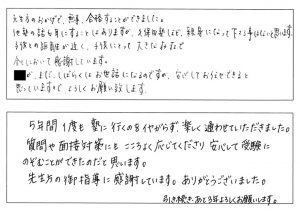 先生方のおかげで、無事、合格することができました。
他塾の話も耳にすることはありますが、久保田塾ほど、親身になって下さる事はないと思います。
子供との距離が近く、子供にとって大きな存在で
今もとても感謝しています。
が、まだ、しばらくはお世話になるのですが、安心してお任せできると
思っていますので、よろしくお願い致します。
5年間1度も塾に行くのをイヤがらず、楽しく通わせていただきました。
質問や面接対策にもこころよく応じてくださり安心して受験に
のぞむことができたのだと思います。
先生方の御指導に感謝しています。ありがとうございました。
引き続き、あと3年よろしくお願いします。